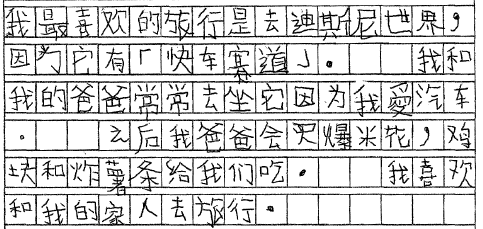 我最喜欢的旅行是去迪斯尼世界，
因为它有「快车赛道」。 我和
我的爸爸常常去坐它因为我愛汽车
。 之后我爸爸会买爆米花，鸡
块和炸薯条给我们吃。 我喜欢
和我的家人去旅行。